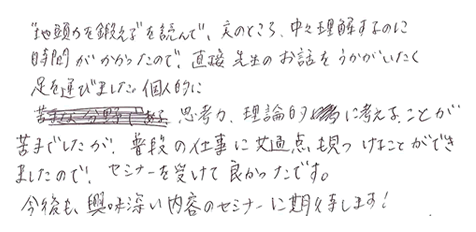 "地頭力を鍛える"を読んで、文のところ、中々理解するのに
時間がかかったので、直接先生のお話をうかがいたく
足を運びました。個人的に
苦手な分野である 思考力、理論的に考えることが
苦手でしたが、普段の仕事に共通点も見つけることができ
ましたので、セミナーを受けて良かったです。
今後も、興味深い内容のセミナーに期待します!